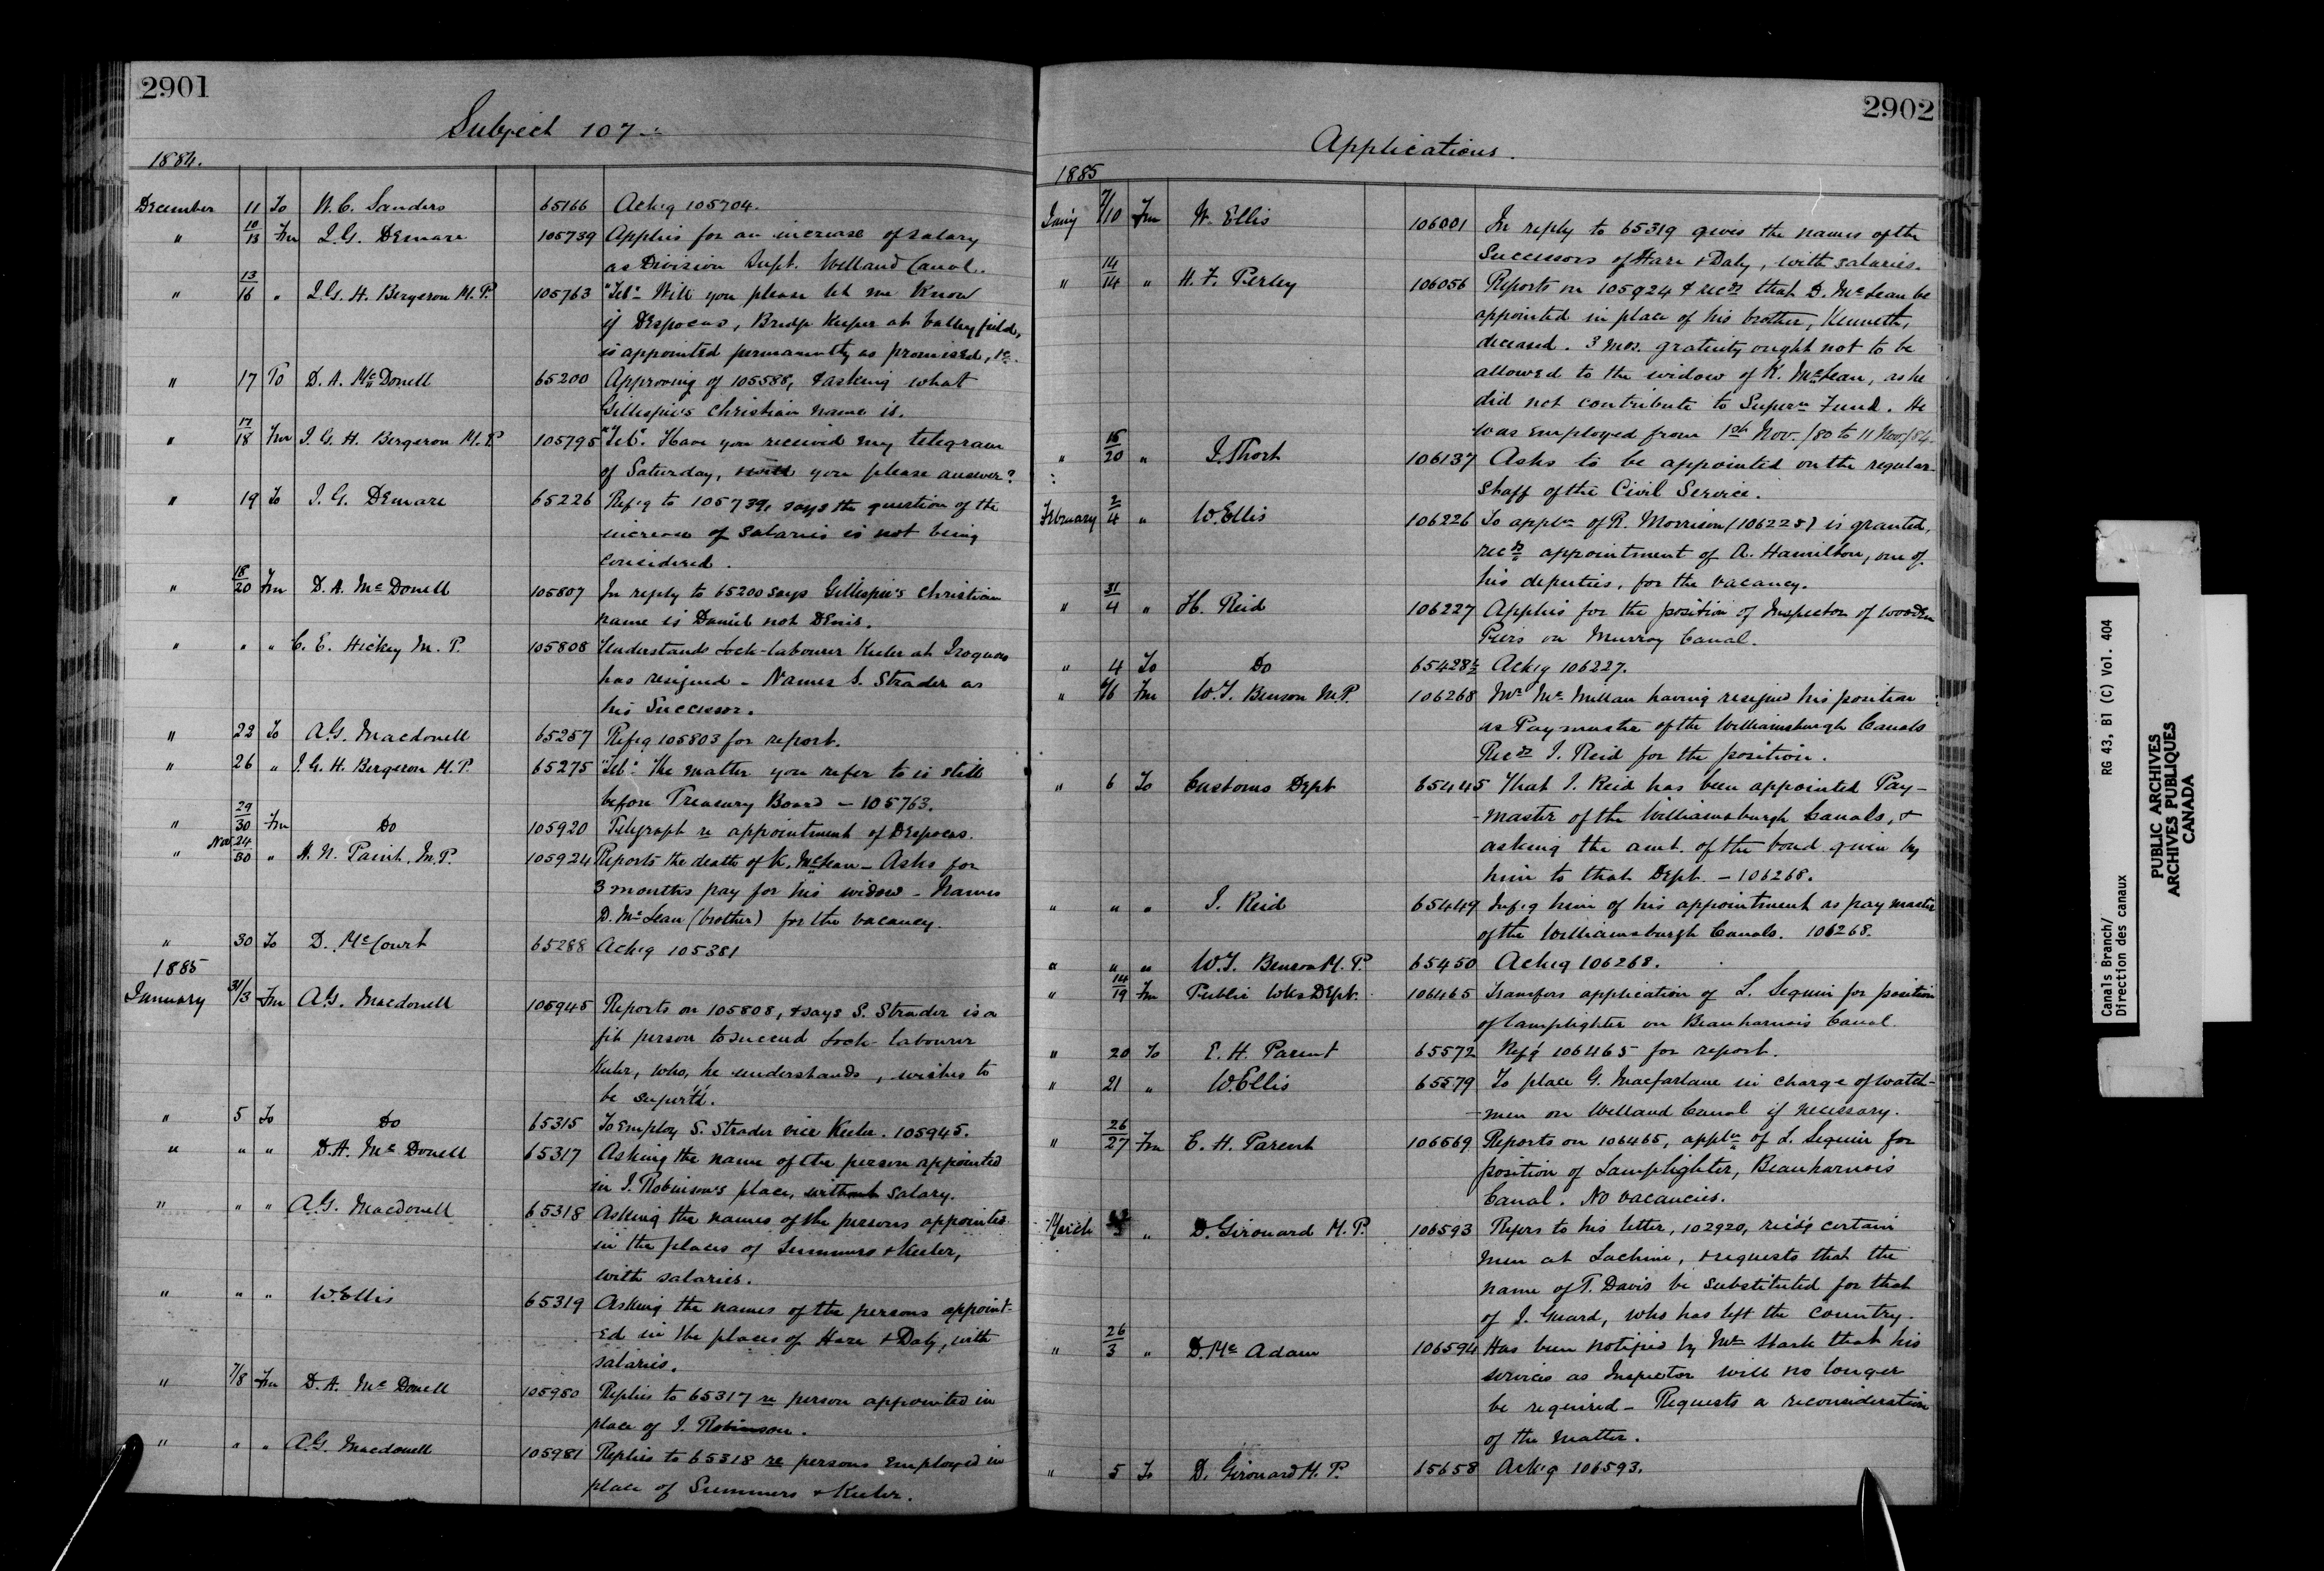 2901
Subject 107
1884.
December 11 To W. C. Sanders 65166 Ackg 105704.
" 10/13 Fm J. G. Demare 105739 Applies for an increase of salary
as Division Supt. Welland Canal.
" 13/16 " J. G. H. Bergeron M.P. 105763 "Tel". Will you please let me know
if Despocas, Bridge Keeper at Valleyfield,
is appointed permanently as promised, &c.
" 17 To D. A. McDonell 65200 Approving of 105588, & asking what
Gillespie's Christian name is.
" 17/18 Fm J. G. H. Bergeron M.P. 105795 "Tel". Have you received my telegram
of Saturday, & will you please answer?
" 19 To J. G. Demare 65226 Refg to 105739, says the question of the
increase of salaries is not being
considered.
" 18/20 Fm D. A. McDonell 105807 In reply to 65200 says Gillespie's Christian
name is Daniel not Denis.
" " " C. E. Hickey M.P. 105808 Understands Lock-labourer Keeler at Iroquois
has resigned - Names S. Strader as
his Successor.
" 22 To A. G. Macdonell 65257 Refg 105803 for report.
" 26 " J. G. H. Bergeron M.P. 65275 "Tel". The matter you refer to is still
before Treasury Board - 105763.
" 29/30 Fm Do 105920 Telegraph re appointment of Despocas.
" Nov 24/30 " H. N. Paint, M.P. 105924 Reports the death of K. McLean - Asks for
3 months pay for his widow - Names
D. McLean (brother) for the vacancy.
" 30 To D. McCourt 65288 Ackg 105381
1885
January 31/3 Fm A. G. Macdonell 105945 Reports on 105808, & says S. Strader is a
fit person to succeed Lock-labourer
Keeler, who, he understands, wishes to
be super'td.
" 5 To Do 65315 To employ S. Strader vice Keeler. 105945.
" " " D. A. McDonell 65317 Asking the name of the person appointed
in J. Robinson's place, without salary.
" " " A. G. Macdonell 65318 Asking the names of the persons appointed
in the places of Summers & Keeler,
with salaries.
" " " W. Ellis 65319 Asking the names of the persons appoint-
ed in the places of Hare & Daly, with
salaries.
" 7/8 Fm D. A. McDonell 105980 Replies to 65317 re person appointed in
place of J. Robinson.
" " " A. G. Macdonell 105981 Replies to 65318 re persons employed in
place of Summers & Keeler.
2902
Applications.
1885
Jan'y 7/10 Fm W. Ellis 106001 In reply to 65319 gives the names of the
Successors of Hare & Daly, with salaries.
" 14/14 " H. F. Perley 106056 Reports on 105924 & recds that D. McLean be
appointed in place of his brother, Kenneth,
deceased. 3 mos. gratuity ought not to be
allowed to the widow of K. McLean, as he
did not contribute to Supern Fund. He
was employed from 1st Nov./80 to 11 Nov./84.
" 16/20 " J. Short 106137 Asks to be appointed on the regular
Staff of the Civil Service.
February 2/4 " W. Ellis 106226 To appln of R. Morrison (106225) is granted,
recds appointment of A. Hamilton, one of
his deputies, for the vacancy.
" 31/4 " H. Reid 106227 Applies for the position of Inspector of wooden
Piers on Murray Canal.
" 4 To Do 65428½ Ackg 106227.
" 6/6 Fm W. T. Benson M.P. 106268 Mr McMillan having resigned his position
as Paymaster of the Williamsburgh Canals
Recds J. Reid for the position.
" 6 To Customs Dept 65445 That J. Reid has been appointed Pay-
-master of the Williamsburgh Canals, &
asking the amt. of the bond given by
him to that Dept. - 106268.
" " " J. Reid 65449 Infg him of his appointment as paymaster
of the Williamsburgh Canals. 106268.
" " " W. T. Benson M.P. 65450 Ackg 106268.
" 14/19 Fm Public Wks Dept. 106465 Transfers application of L. Sequin for position
of lamplighter on Beauharnois Canal.
" 20 To E. H. Parent 65572 Refg 106465 for report.
" 21 " W. Ellis 65579 To place G. Macfarlane in charge of watch-
-men on Welland Canal if necessary.
" 26/27 Fm E. H. Parent 106569 Reports on 106465, appln of L. Sequin for
position of Lamplighter, Beauharnois
Canal. No vacancies.
March " D. Girouard M.P. 106593 Refers to his letter, 102920, certain
men at Lachine, & requests that the
name of T. Davis be substituted for that
of J. Guard, who has left the country.
" 26/3 " D. McAdam 106594 Has been notified by Mr Stark that his
services as Inspector will no longer
be required - Requests a reconsideration
of the matter.
" 5 To D. Girouard M.P. 65658 Ackg 106593.
Canals Branch/
Direction des canaux
RG 43, B1 (C) Vol. 404
PUBLIC ARCHIVES
ARCHIVES PUBLIQUES
CANADA